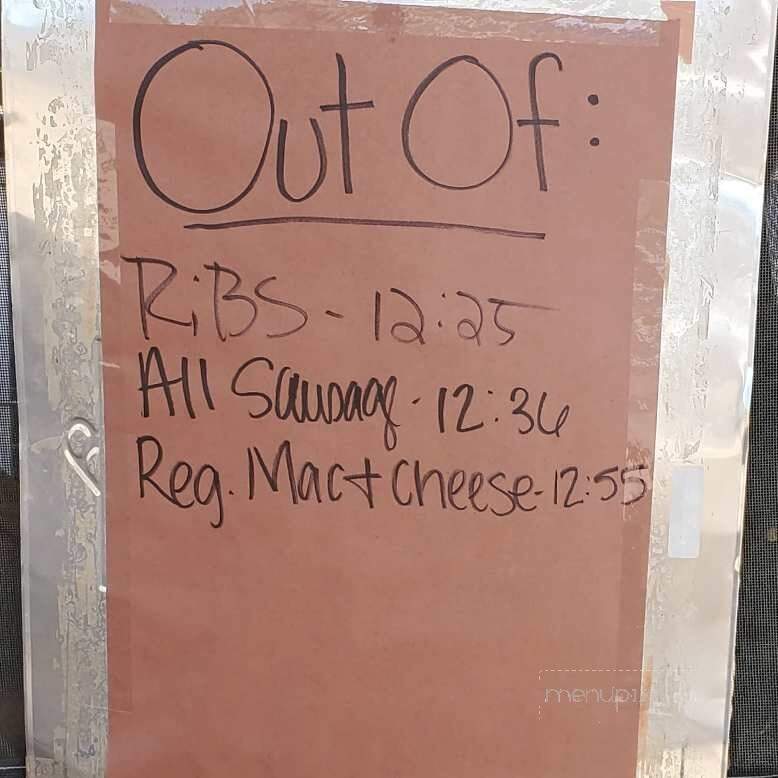 Out Of:
RiBS - 12:25
All Sausage - 12:36
Reg. Mac + Cheese - 12:55